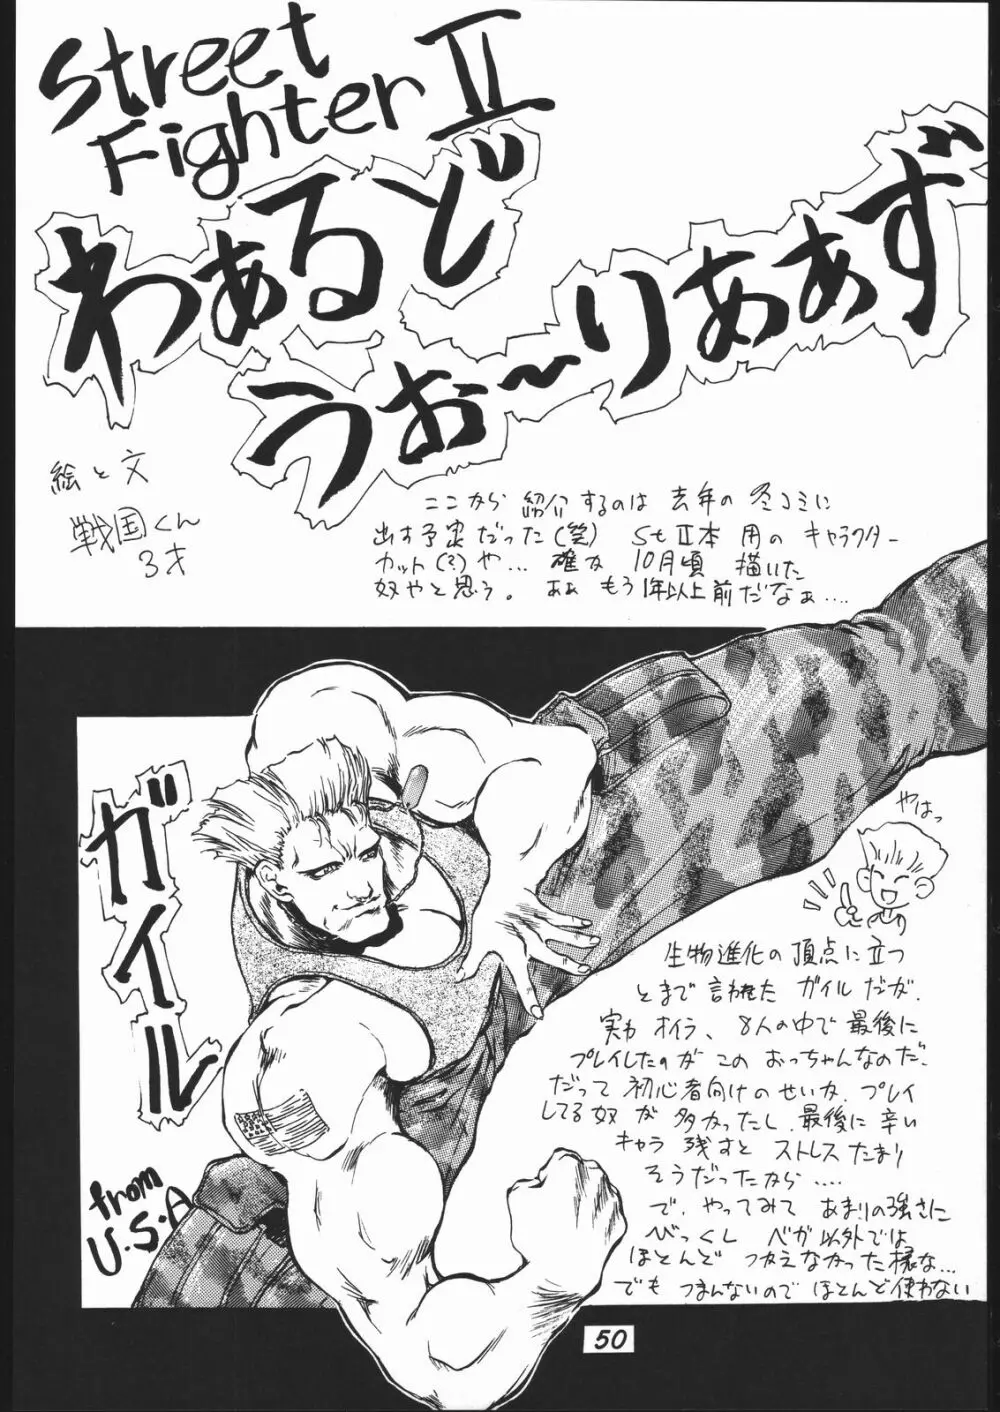 Street
Fighter II
わぁるど
うぉ〜りあぁず
絵と文
戦国くん
3才
ここから紹介するのは去年の冬コミに
出す予定だった(笑) StII本用のキャラクター
カット(?)や…確か10月頃描いた
奴やと思う。ああもう1年以上前だなぁ….
ガイル
from
U.S.A
やはっ
生物進化の頂点に立つ
とまで言われたガイルだが、
実わオイラ、8人の中で最後に
プレイしたのがこのおっちゃんなのだ、
だって初心者向けのせいか、プレイ
してる奴が多かったし、最後に辛い
キャラ残すとストレスたまり
そうだったから….
で、やってみてあまりの強さに
べっくし ベガ以外では
ほとんどつかえなかった様な…
でもつまんないのでほとんど使わない
50